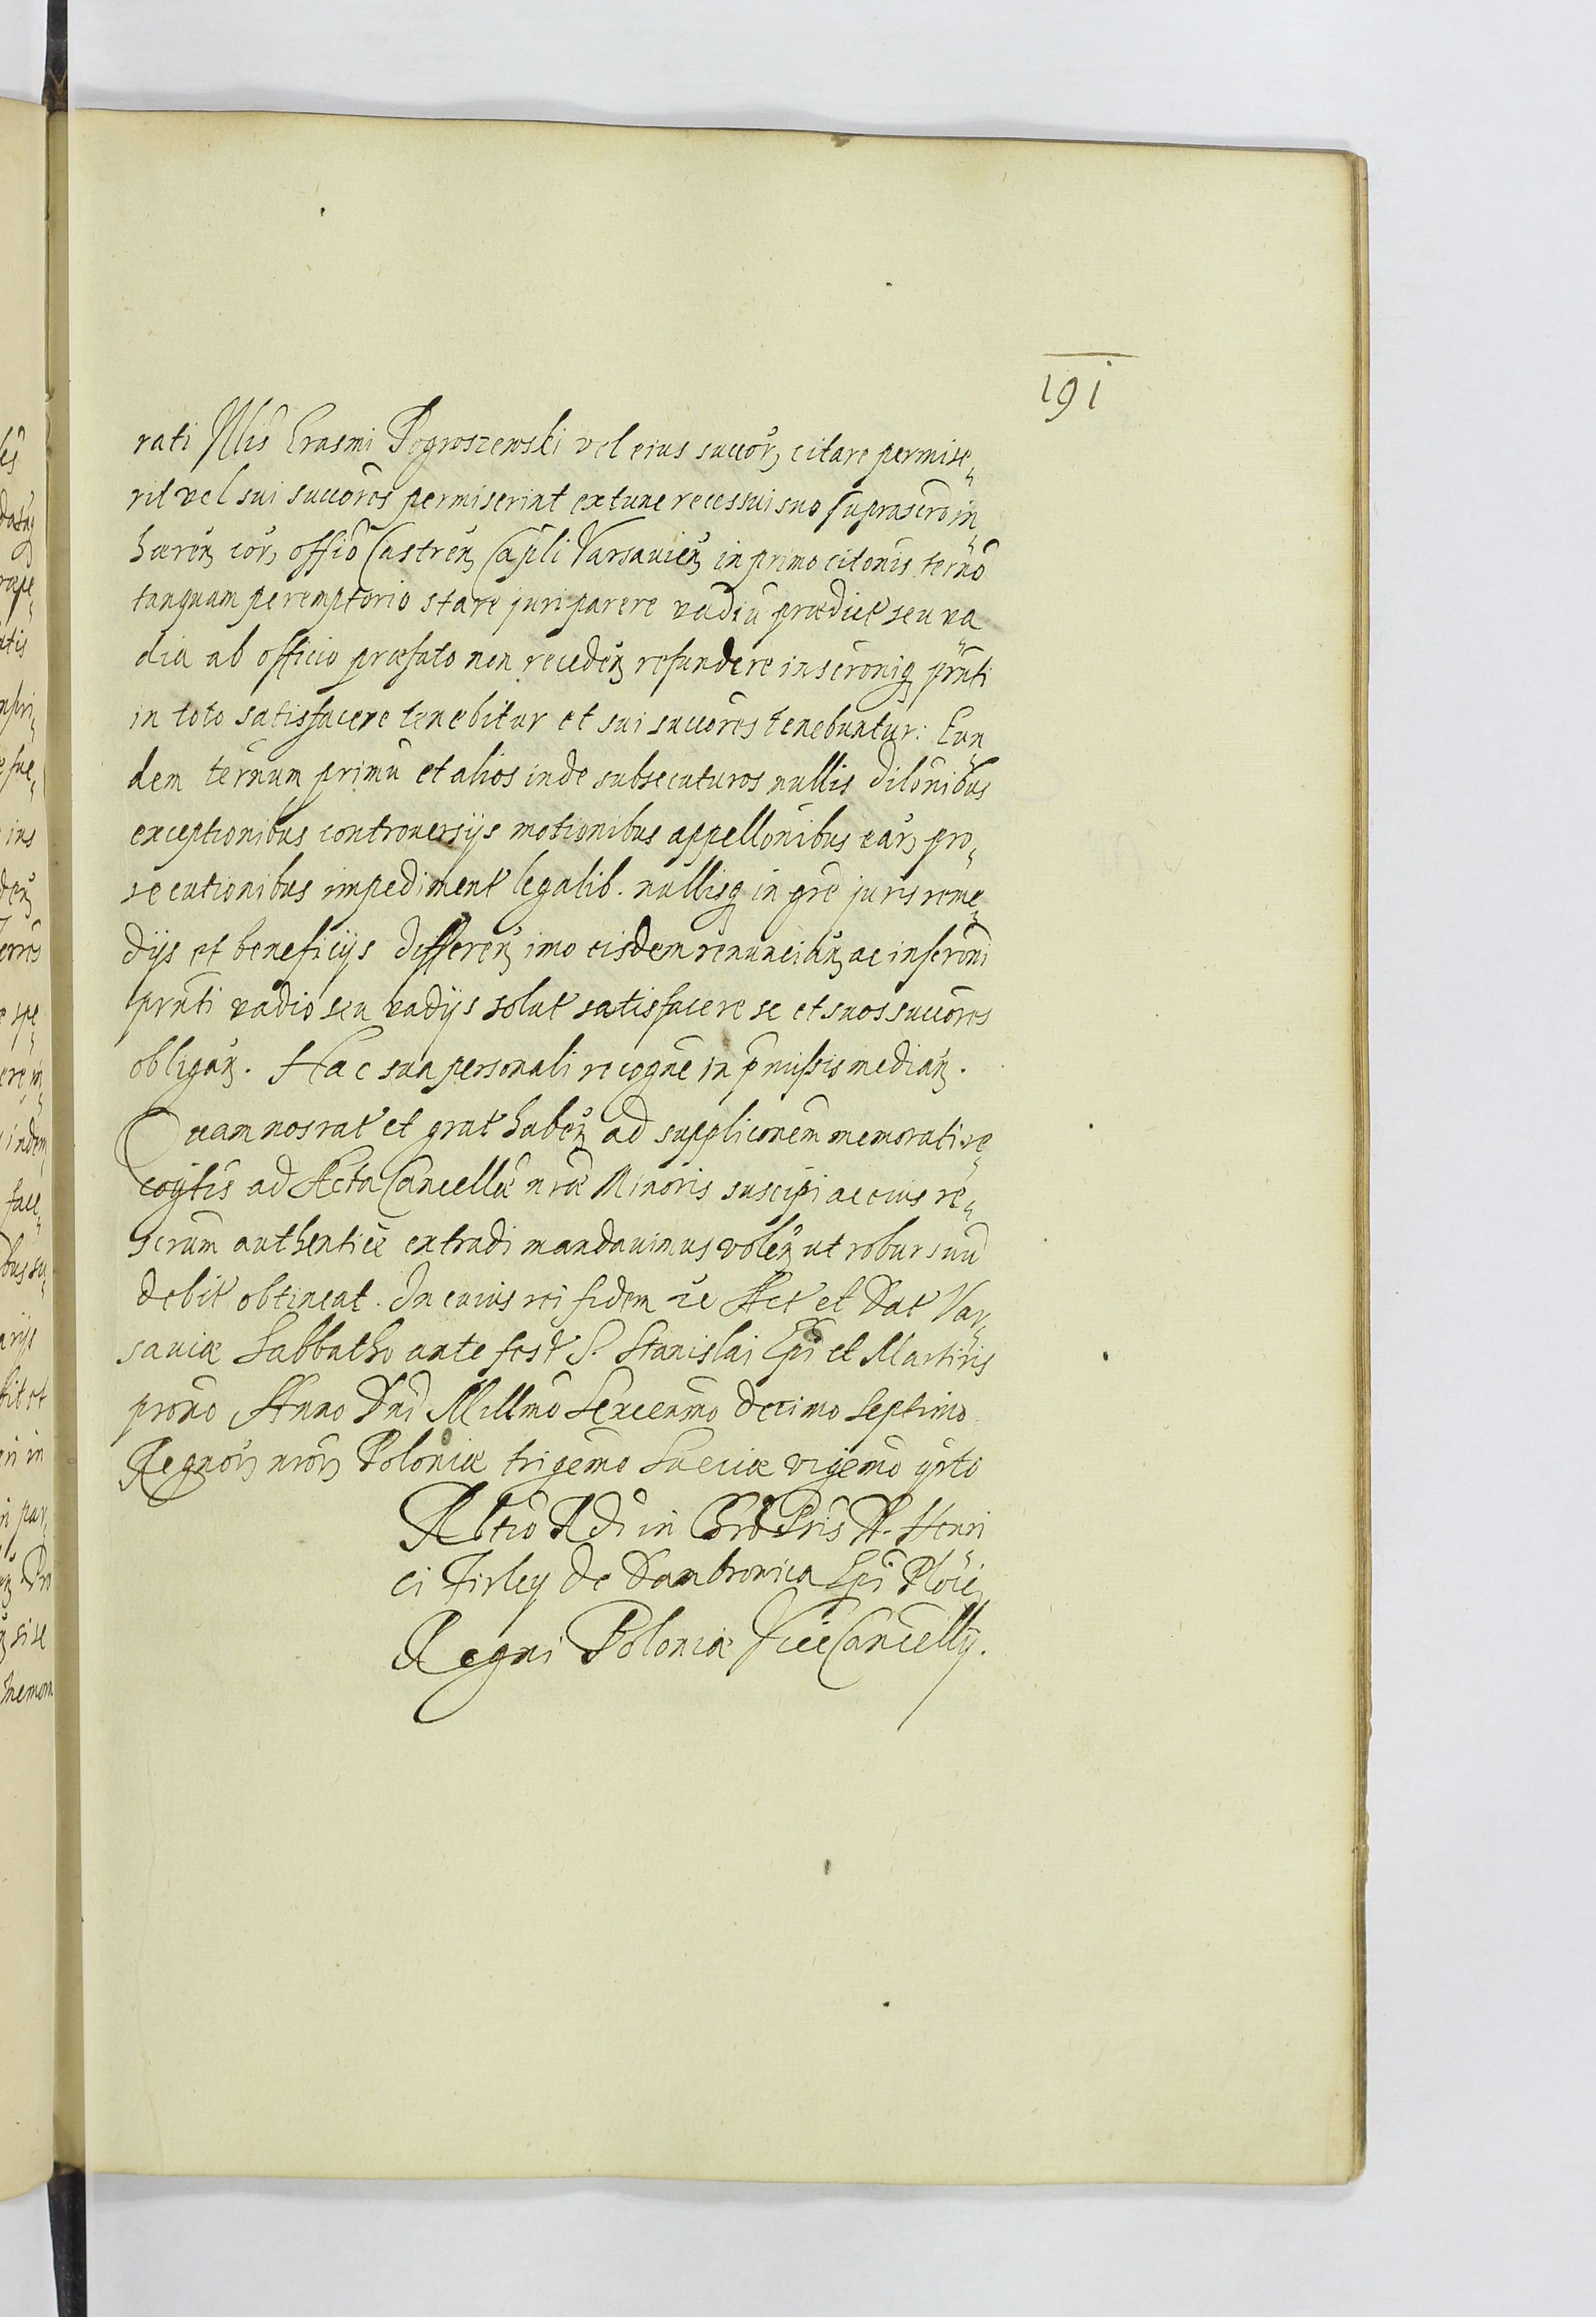 191
rati Mlis Erasmi Pogroszewski vel eius succor, citare permise„
rit vel sui succores permiserint extunc recessui suo suprascro in„
hæren, cor, offio Castren, Capli Varsauien, in primo citonis terno
tanquam peremptorio stare juri parere vadiū prædict seu va„
dia ab officio præfato non receden, refundere inscroniq, prnti
in toto satisfacere tenebitur et sui succores tenebuntur: Eun„
dem ternum primū et alios inde subsecuturos nullis dilonibus
exceptionibus controuersijs motionibus appellonibus ear, pro„
secutionibus impediment legalib. nullisq, in gre juris reme„
dijs et beneficijs differen, imo eisdem renuncian, ac inscroni
prnti vadio seu vadijs solut satisfacere se et suos succores
obligan,. Hac sua personali recogne in pmissis median,.
Quam nos rat et grat haben, ad suppliconem memorati re„
cogtis ad Acta Cancellæ nræ Minoris suscipi ac eius re„
scrum authentice extradi mandauimus volen, ut robur suū
debit obtineat. In cuius rei fidem zc Act et Dat Var„
sauiæ Sabbatho ante fest S. Stanislai Epi et Martiris
prono Anno Dni Millmo Sexcenmo decimo septimo
Regnor, nror, Poloniæ trigemo Sueciæ vigemo qrto
Rltio Rdi in Chro Pris D. Henri„
ci Firley de Dambrowica Epi Plocen,
Regni Poloniæ ViceCancellij.